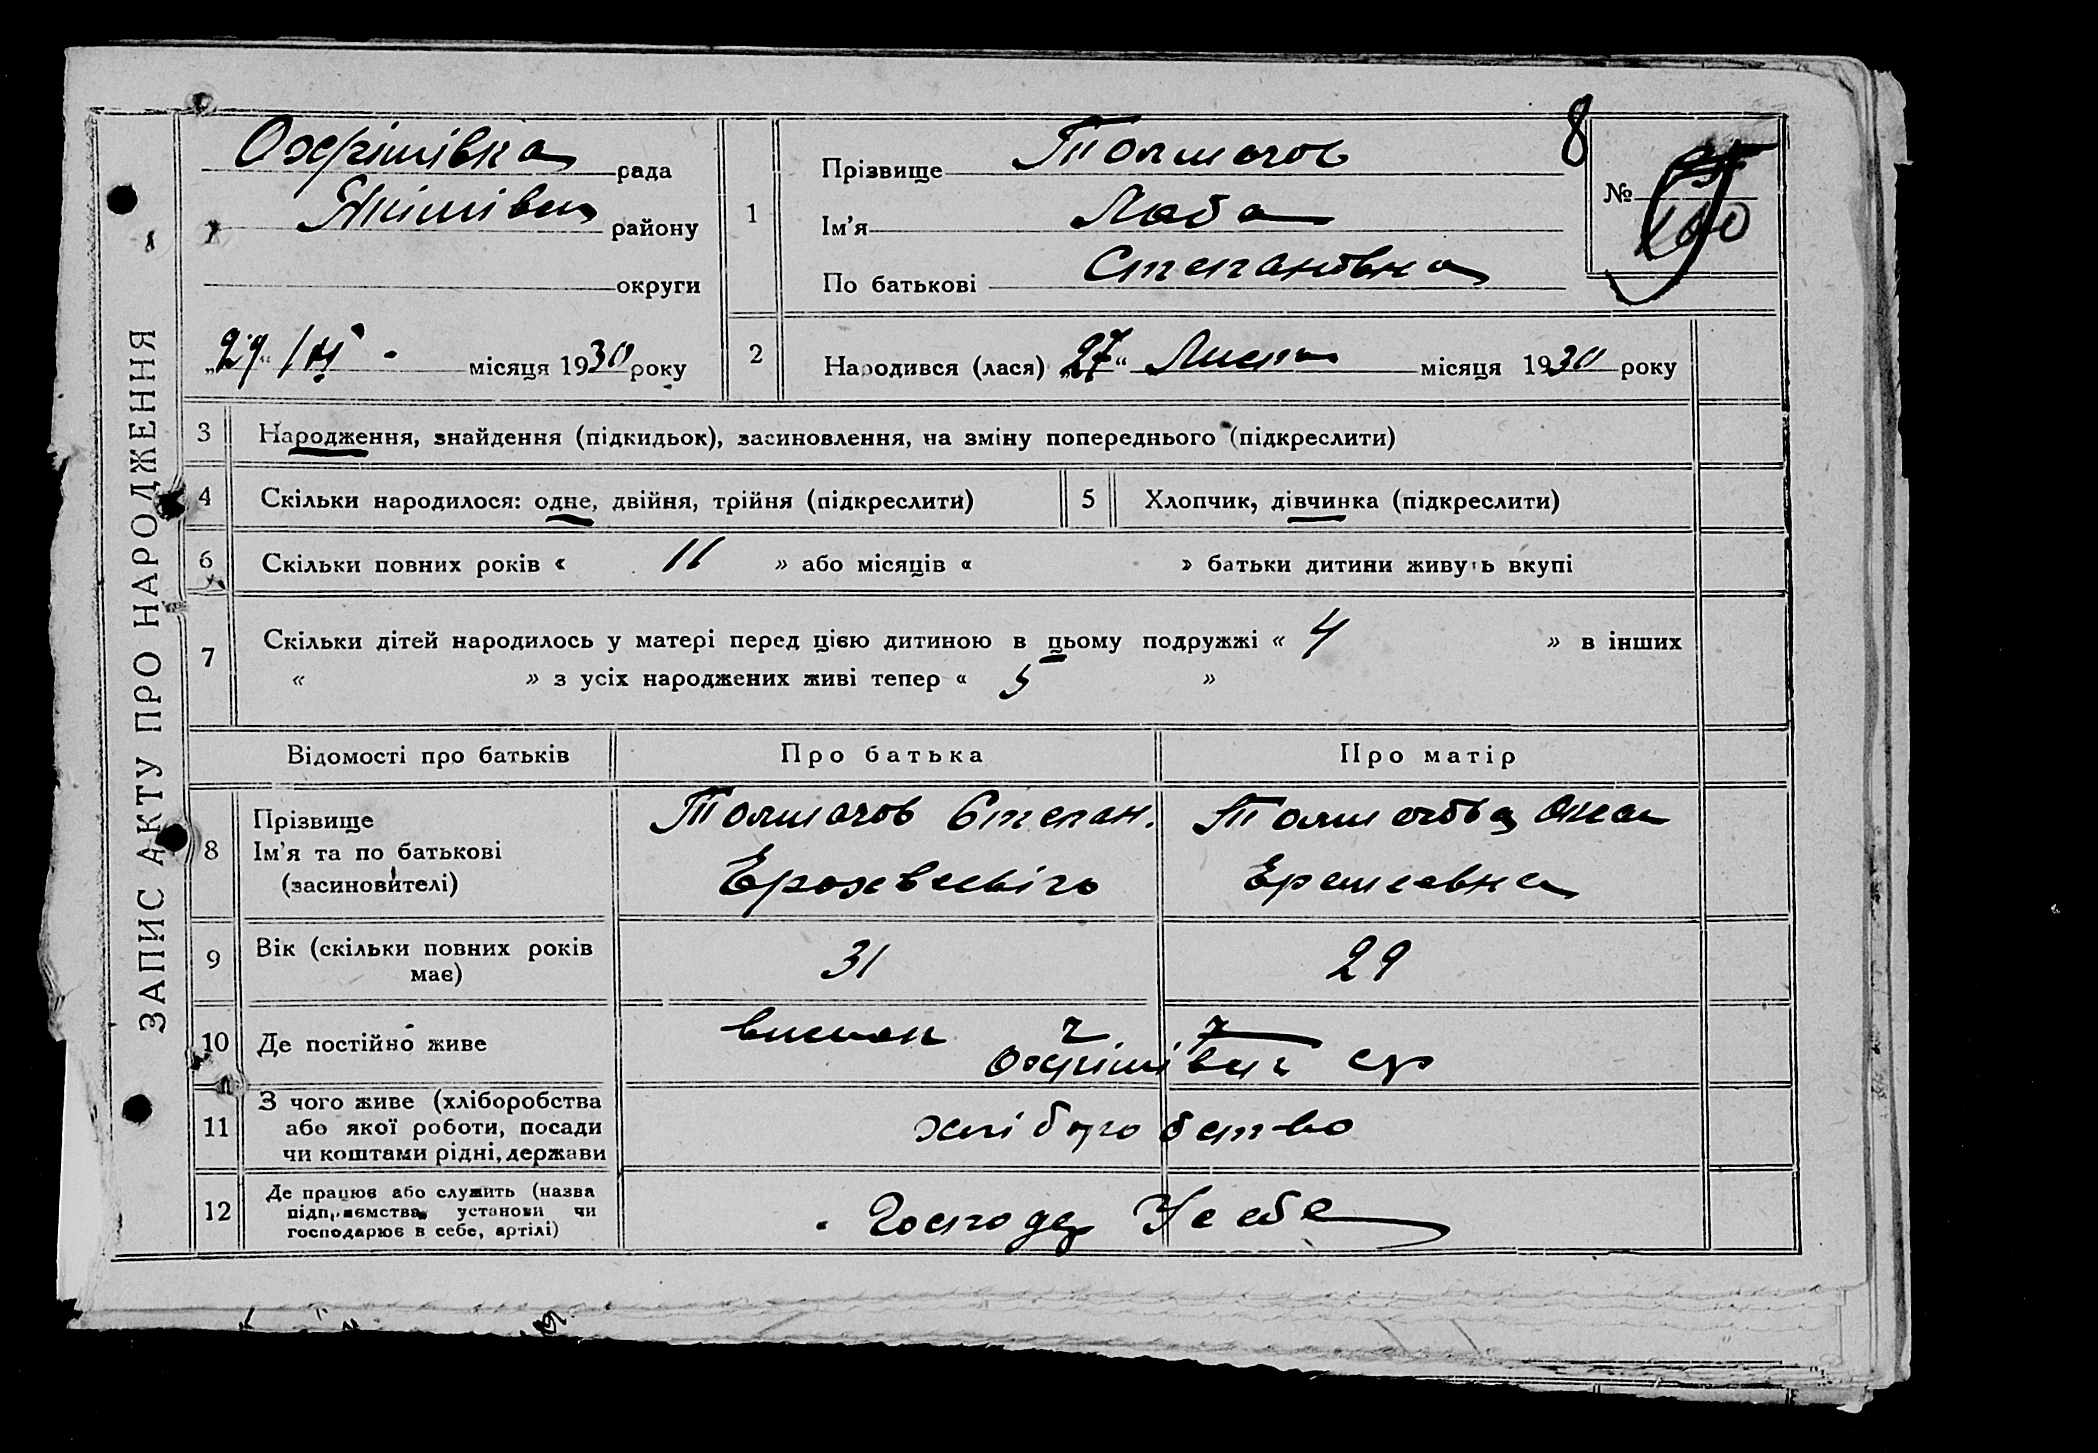 ЗАПИС АКТУ ПРО НАРОДЖЕННЯ
Охрімівка рада
району
округи
29 місяця 1930 року
1
Прізвище Толмачов
Ім’я Люба
По батькові Степановна
8
№
160
2
Народився (лася) „27“ місяця 1930 року
3 Народження, знайдення (підкидьок), засиновлення, на зміну попереднього (підкреслити)
4 Скільки народилося: одне, двійня, трійня (підкреслити)
5 Хлопчик, дівчинка (підкреслити)
6 Скільки повних років « 11 » або місяців « » батьки дитини живуть вкупі
7 Скільки дітей народилось у матері перед цією дитиною в цьому подружжі « 4 » в інших
« » з усіх народжених живі тепер « 5 »
Відомості про батьків Про батька Про матір
8 Прізвище
Ім’я та по батькові
(засиновителі)
Толмачов Степан.
Толмачова
9 Вік (скільки повних років
має)
31 29
10 Де постійно живе
11 З чого живе (хліборобства
або якої роботи, посади
чи коштами рідні, держави
хліборобство
12 Де працює або служить (назва
підприємства, установи чи
господарює в себе, артілі)
Господар У себе